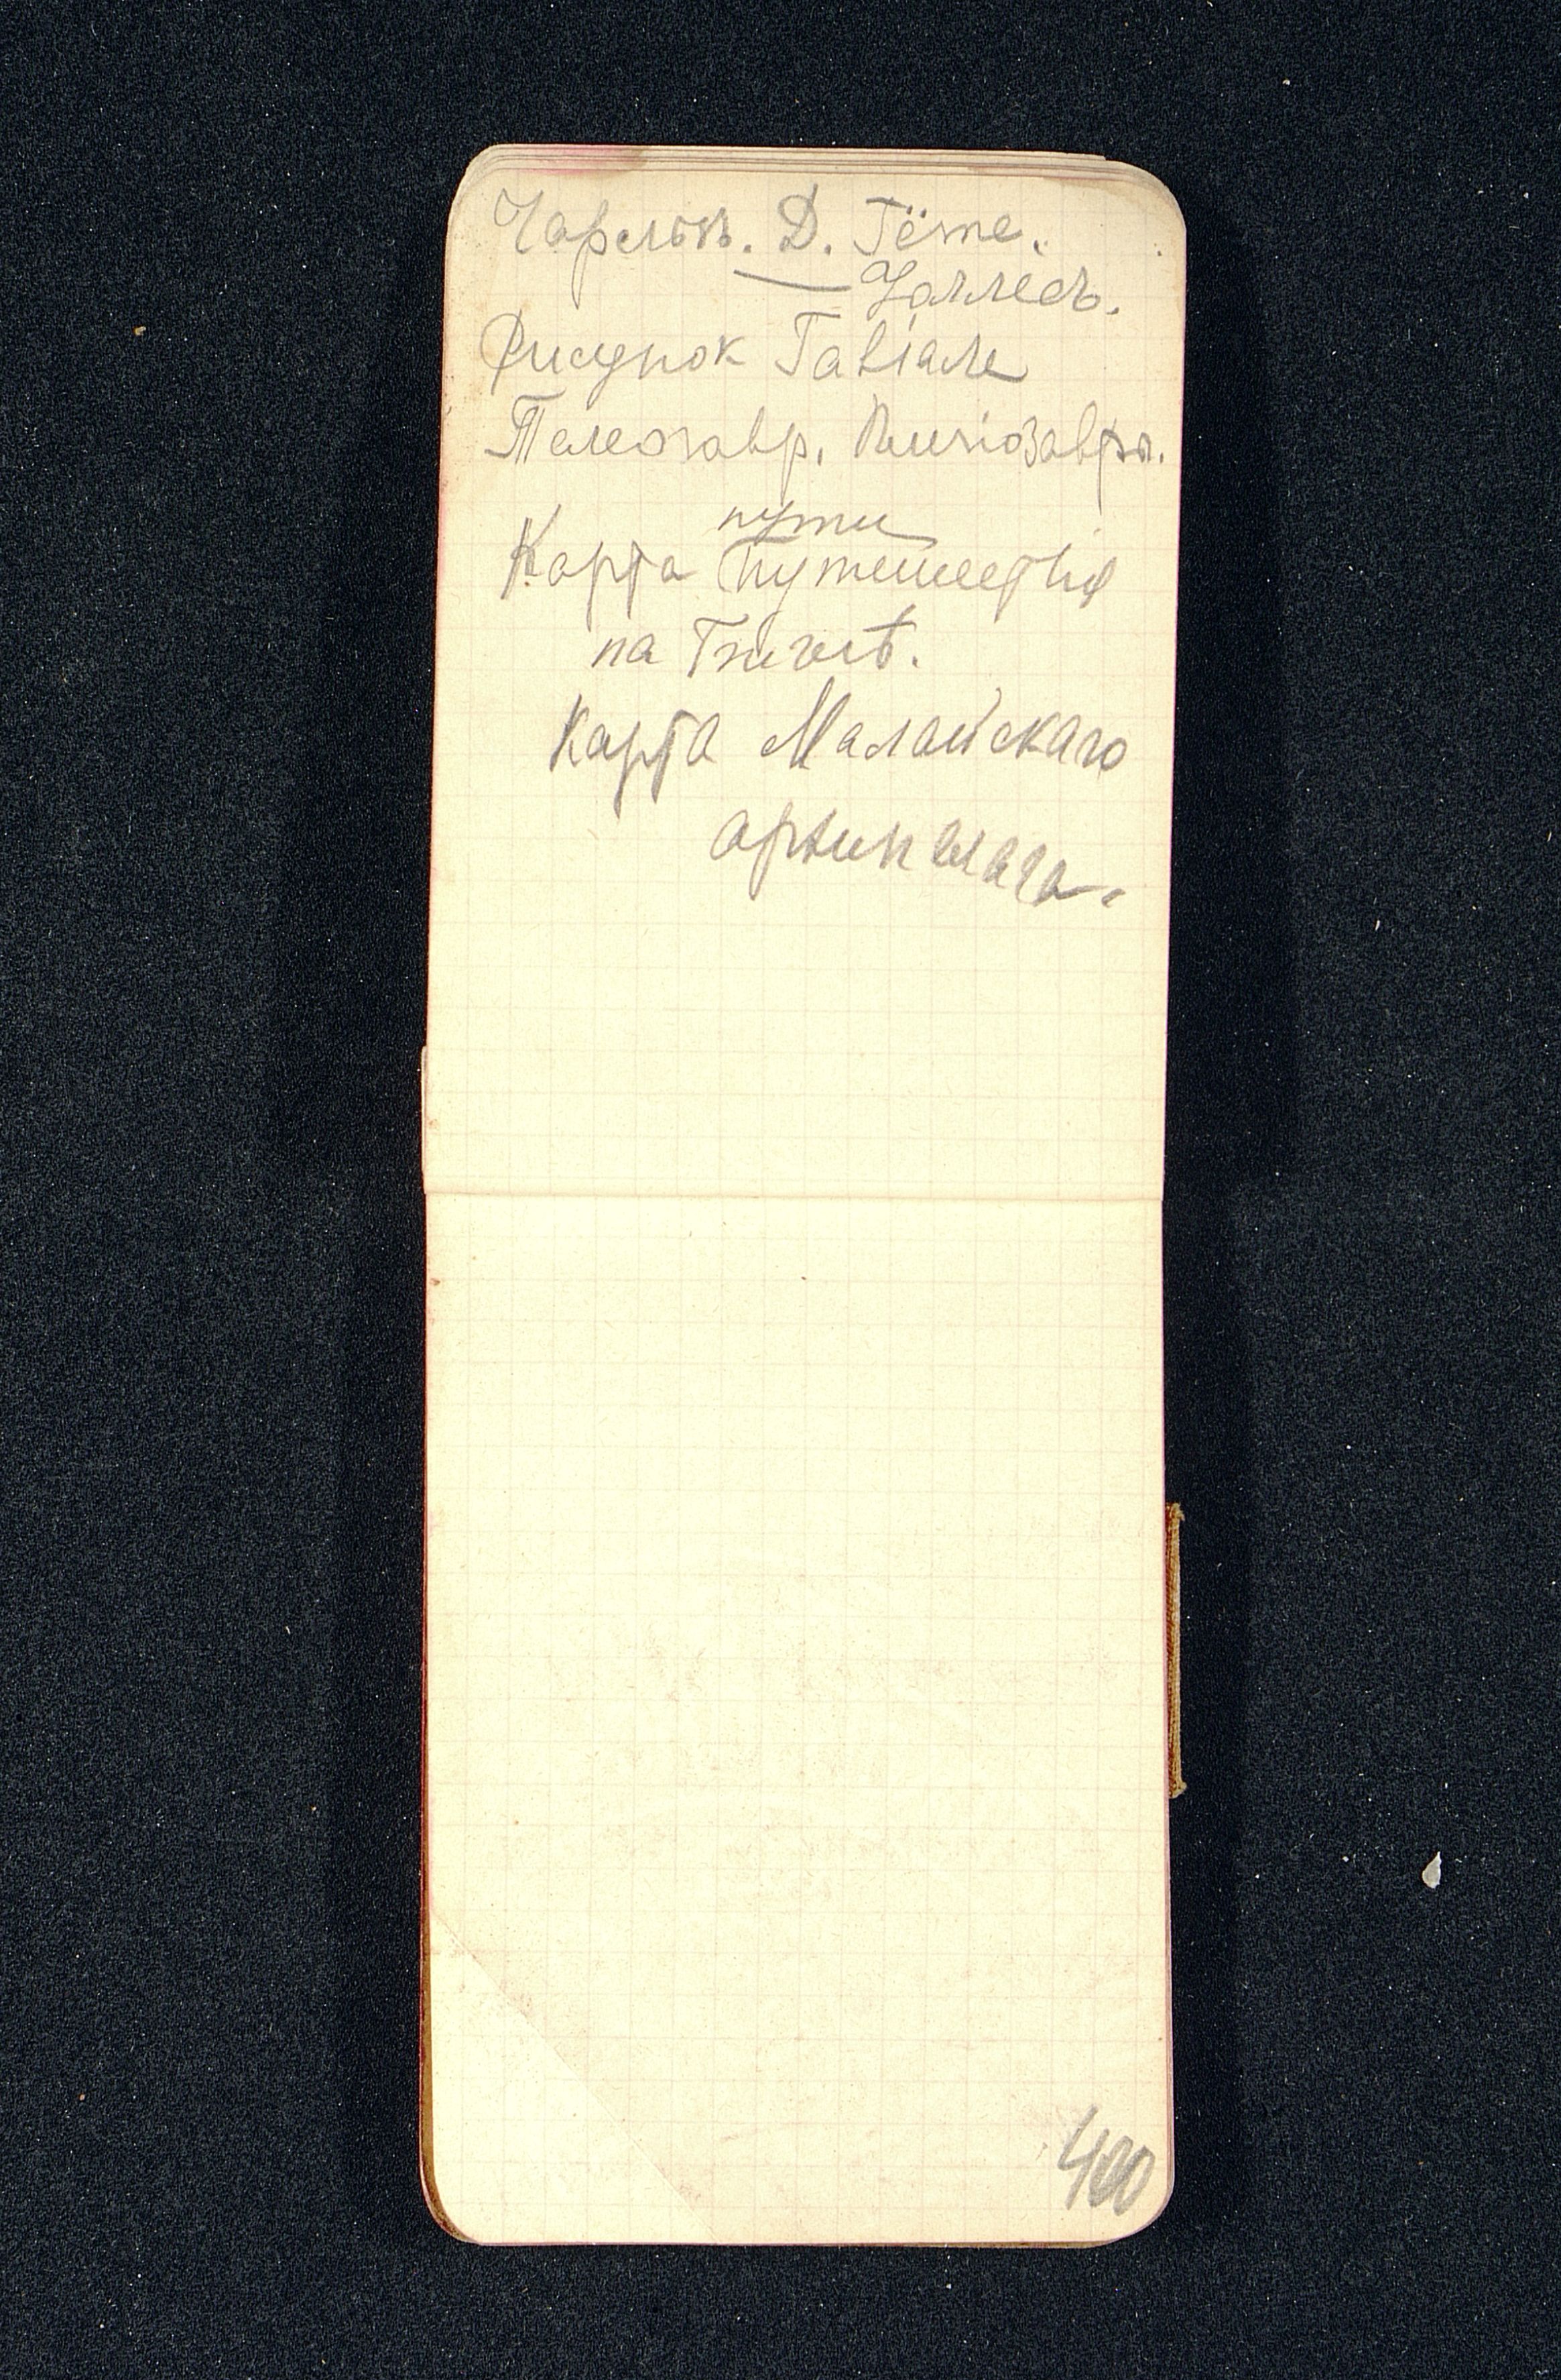 Чарльзъ. Д. Гёте.
Уоллесъ.
Рисунок Гавіале
Телеозавр. Плезіозавры.
пути
Карта путешествія
на Биглѣ.
Карта Малайскаго
архипелага.
400